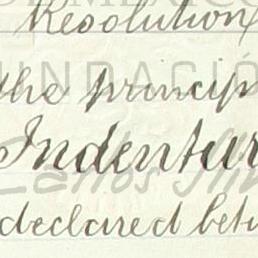 Resolution
the princip
Indentur
declared betw